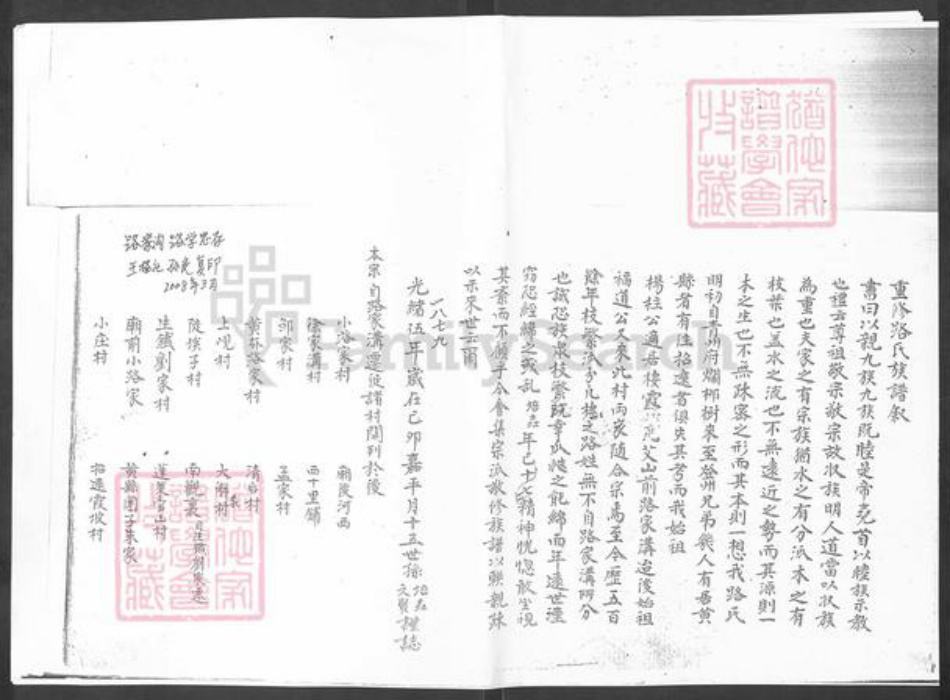 重修路氏族譜叙
書曰以親九族九族既睦是帝堯首以睦族示教
也禮云尊祖敬宗敬宗收族明人道當以收族
為重也夫家之有宗族猶水之有分派木之有
枝葉也盖水之流也不無遠近之勢而其源則一
木之生也不無踈宻之形而其本則一想我路氏
明初自青州府爛柳樹來至登州兄弟幾人有居黄
縣者有住招遠者俱失其考而我始祖
楊柱公適居棲霞艾山前路家溝迨後始祖
福道公又來此村两家随合宗焉至今歷五百
餘年枝繁派分凡棲之路姓無不自路家溝所分
也誠恐族衆枝繁既幸瓜瓞之能綿而年遠世湮
窃恐經緯之或乱 年已十七精神恍惚敢坐視
其紊而不顧乎今會集宗派敬修族譜以聯親踈
以示來世云爾
一八七九
光緒伍年歲在己卯嘉平月十五世孫 文賢 謹誌
本宗自路家溝遷徙諸村開列於後
小路家村 廟後河西
徐家溝村 西十里鋪
邹家村 孟家村
黄燕路家村 清台村
上岘村
陡埃子村 南觀裏
生鐵劉家村 蓬莱
廟前小路家 黄縣圈子朱家
小庄村 招遠霞坡村
路家沟 路学忠存
复印
2008年3月
FamilySearch
猶他家譜學會收藏
猶他家譜學會收藏